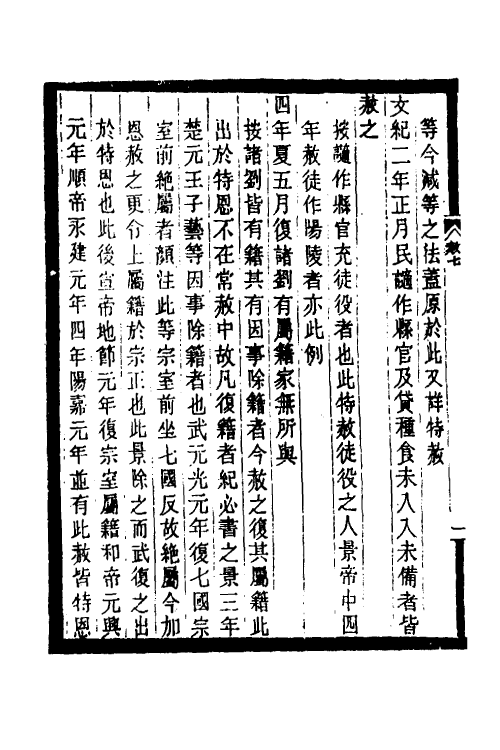 等今減等之法蓋原於此又詳特赦
文紀二年正月民讁作縣官及貸種食未入入未備者皆
赦之
按讁作縣官充徒役者也此特赦徒役之人景帝中四
年赦徒作陽陵者亦此例
四年夏五月復諸劉有屬籍家無所與
按諸劉皆有籍其有因事除籍者今赦之復其屬籍此
出於特恩不在常赦中故凡復籍者紀必書之景三年
楚元王子蓺等因事除籍者也武元光元年復七國宗
室前絶屬者顔注此等宗室前坐七國反故絶屬今加
恩赦之更令上屬籍於宗正也此景除之而武復之出
於特恩也此後宣帝地節元年復宗室屬籍和帝元興
元年順帝永建元年四年陽嘉元年並有此赦皆特恩
赦七
一